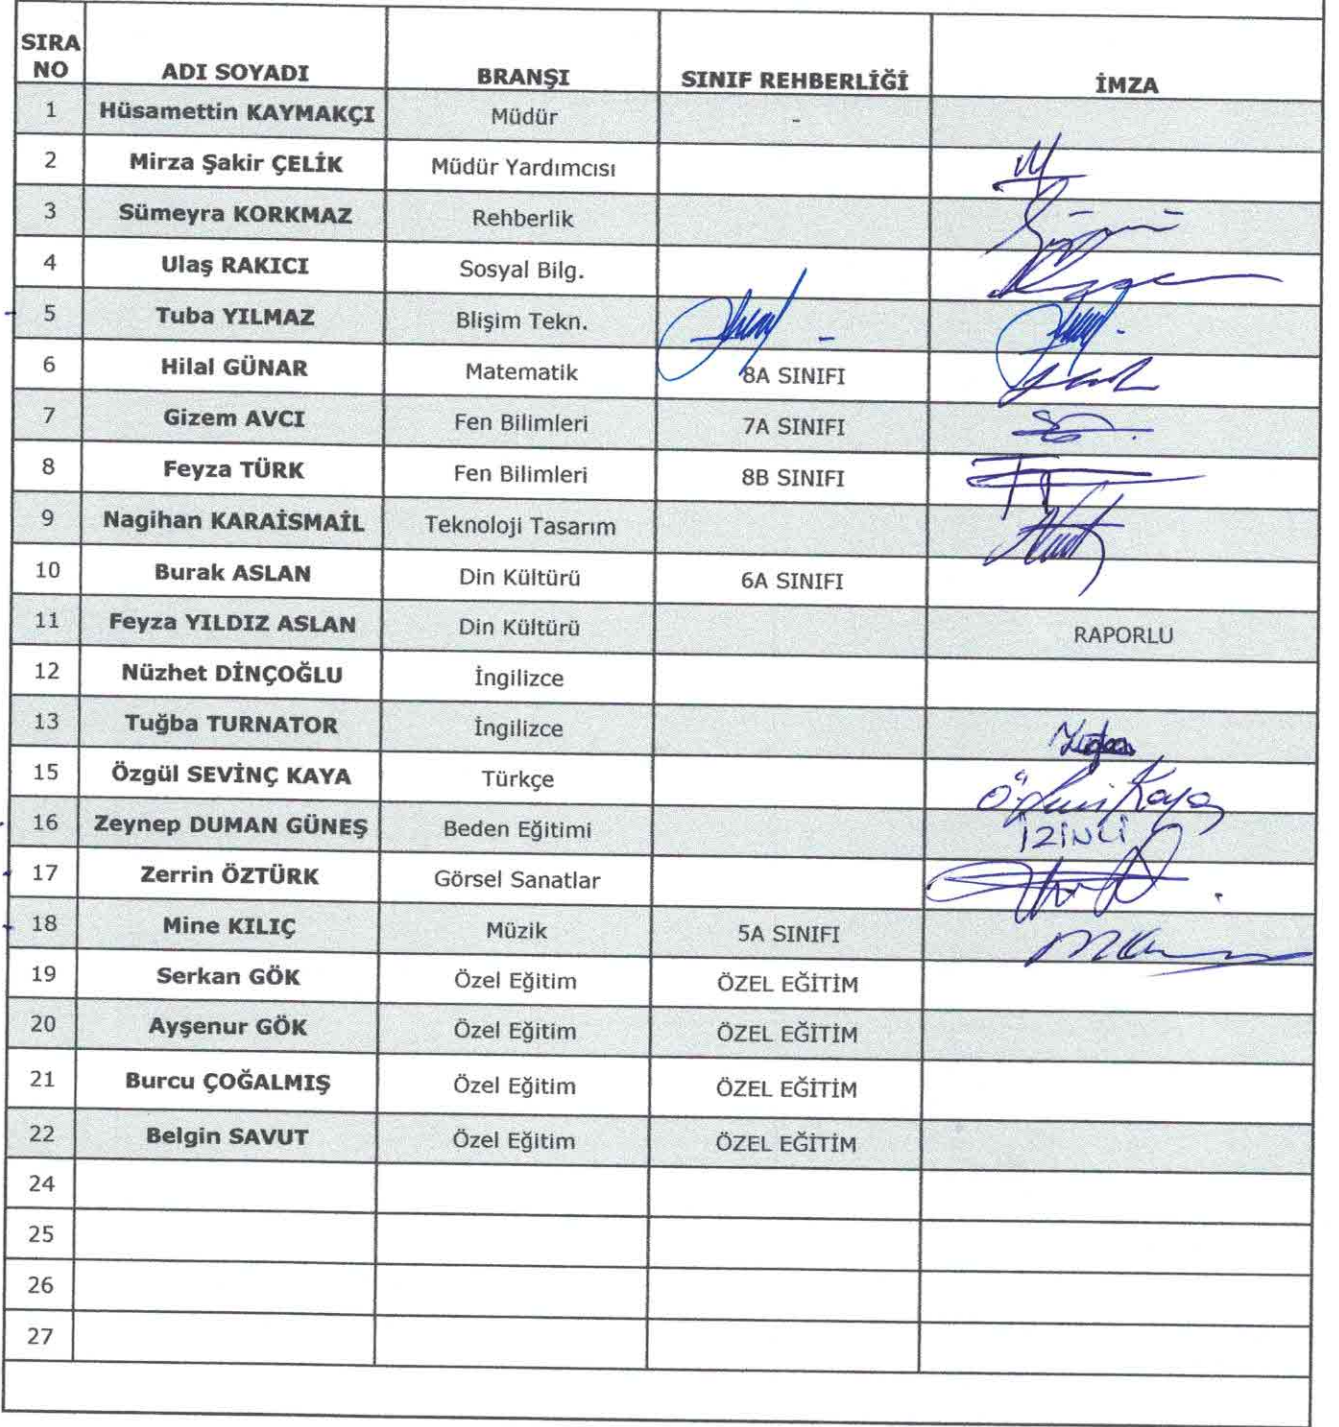 SIRA NO ADI SOYADI BRANŞI SINIF REHBERLİĞİ İMZA
1 Hüsamettin KAYMAKÇI Müdür -
2 Mirza Şakir ÇELİK Müdür Yardımcısı
3 Sümeyra KORKMAZ Rehberlik
4 Ulaş RAKICI Sosyal Bilg.
5 Tuba YILMAZ Blişim Tekn. -
6 Hilal GÜNAR Matematik 8A SINIFI
7 Gizem AVCI Fen Bilimleri 7A SINIFI
8 Feyza TÜRK Fen Bilimleri 8B SINIFI
9 Nagihan KARAİSMAİL Teknoloji Tasarım
10 Burak ASLAN Din Kültürü 6A SINIFI
11 Feyza YILDIZ ASLAN Din Kültürü RAPORLU
12 Nüzhet DİNÇOĞLU İngilizce
13 Tuğba TURNATOR İngilizce
15 Özgül SEVİNÇ KAYA Türkçe
16 Zeynep DUMAN GÜNEŞ Beden Eğitimi İZİNLİ
17 Zerrin ÖZTÜRK Görsel Sanatlar
18 Mine KILIÇ Müzik 5A SINIFI
19 Serkan GÖK Özel Eğitim ÖZEL EĞİTİM
20 Ayşenur GÖK Özel Eğitim ÖZEL EĞİTİM
21 Burcu ÇOĞALMIŞ Özel Eğitim ÖZEL EĞİTİM
22 Belgin SAVUT Özel Eğitim ÖZEL EĞİTİM
24
25
26
27